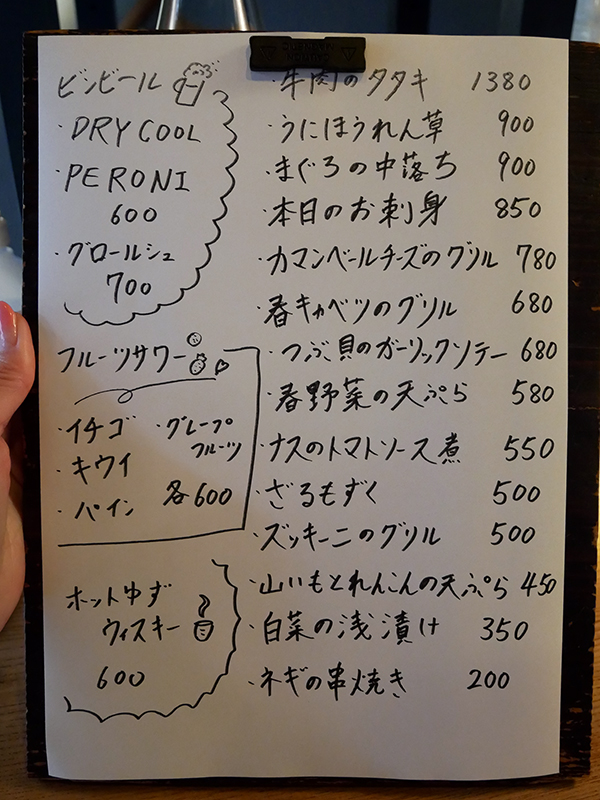 ビンビール
・DRY COOL
・PERONI
600
・グロールシュ
700
フルーツサワー
・イチゴ ・グレープ
フルーツ
・キウイ
・パイン 各600
ホットゆず
ウィスキー
600
・牛肉のタタキ 1380
・うにほうれん草 900
・まぐろの中落ち 900
・本日のお刺身 850
・カマンベールチーズのグリル 780
・春キャベツのグリル 680
・つぶ貝のガーリックソテー 680
・春野菜の天ぷら 580
・ナスのトマトソース煮 550
・ざるもずく 500
・ズッキーニのグリル 500
・山いもとれんこんの天ぷら 450
・白菜の浅漬け 350
・ネギの串焼き 200